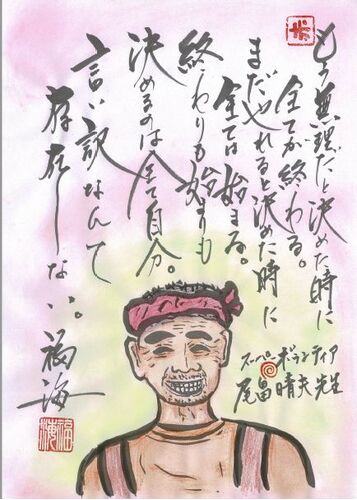 もう無理だと決めた時に
全てが終わる。
まだやれると決めた時に
全ては始まる。
終わりも始まりも
決めるのは全て自分。
言い訳なんて
存在しない。
福海
スーパーボランティア
尾畠晴夫先生
福海